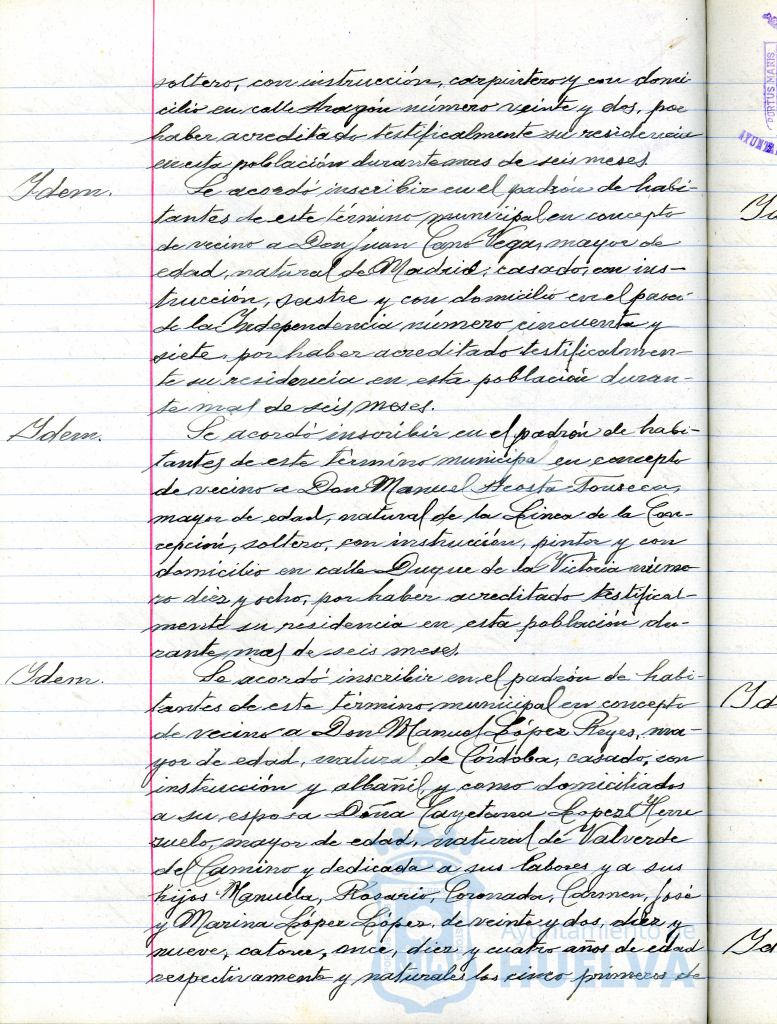 soltero, con instrucción, carpintero y con domi
cilio en calle Aragón número veinte y dos, por
haber acreditado testificalmente su residencia
en esta población durante mas de seis meses.
Idem.
Se acordó inscribir en el padrón de habi-
tantes de este término municipal en concepto
de vecino a Don Juan Cano Vega, mayor de
edad, natural de Madrid, casado, con ins-
trucción, sastre y con domicilio en el paseo
de la Independencia número cincuenta y
siete, por haber acreditado testificalmen-
te su residencia en esta población duran-
te mas de seis meses.
Idem.
Se acordó inscribir en el padrón de habi-
tantes de este término municipal en concepto
de vecino a Don Manuel Acosta Fonseca,
mayor de edad, natural de la Linea de la Con-
cepción, soltero, con instrucción, pintor y con
domicilio en calle Duque de la Victoria núme
ro diez y ocho, por haber acreditado testifical-
mente su residencia en esta población du-
rante mas de seis meses.
Idem.
Se acordó inscribir en el padrón de habi-
tantes de este término municipal en concepto
de vecino a Don Manuel López Reyes, ma-
yor de edad, natural de Córdoba, casado, con
instrucción y albañil, y como domiciliados
a su esposa Doña Cayetana Lopez Herre
zuelo, mayor de edad, natural de Valverde
del Camino y dedicada a sus labores y a sus
hijos Manuela, Rosario, Coronada, Carmen, José
y Marina López López, de veinte y dos, diez y
nueve, catorce, once, diez y cuatro años de edad
respectivamente y naturales los cinco primeros de
Ayuntamiento de
HUELVA
PORTUS MARIS